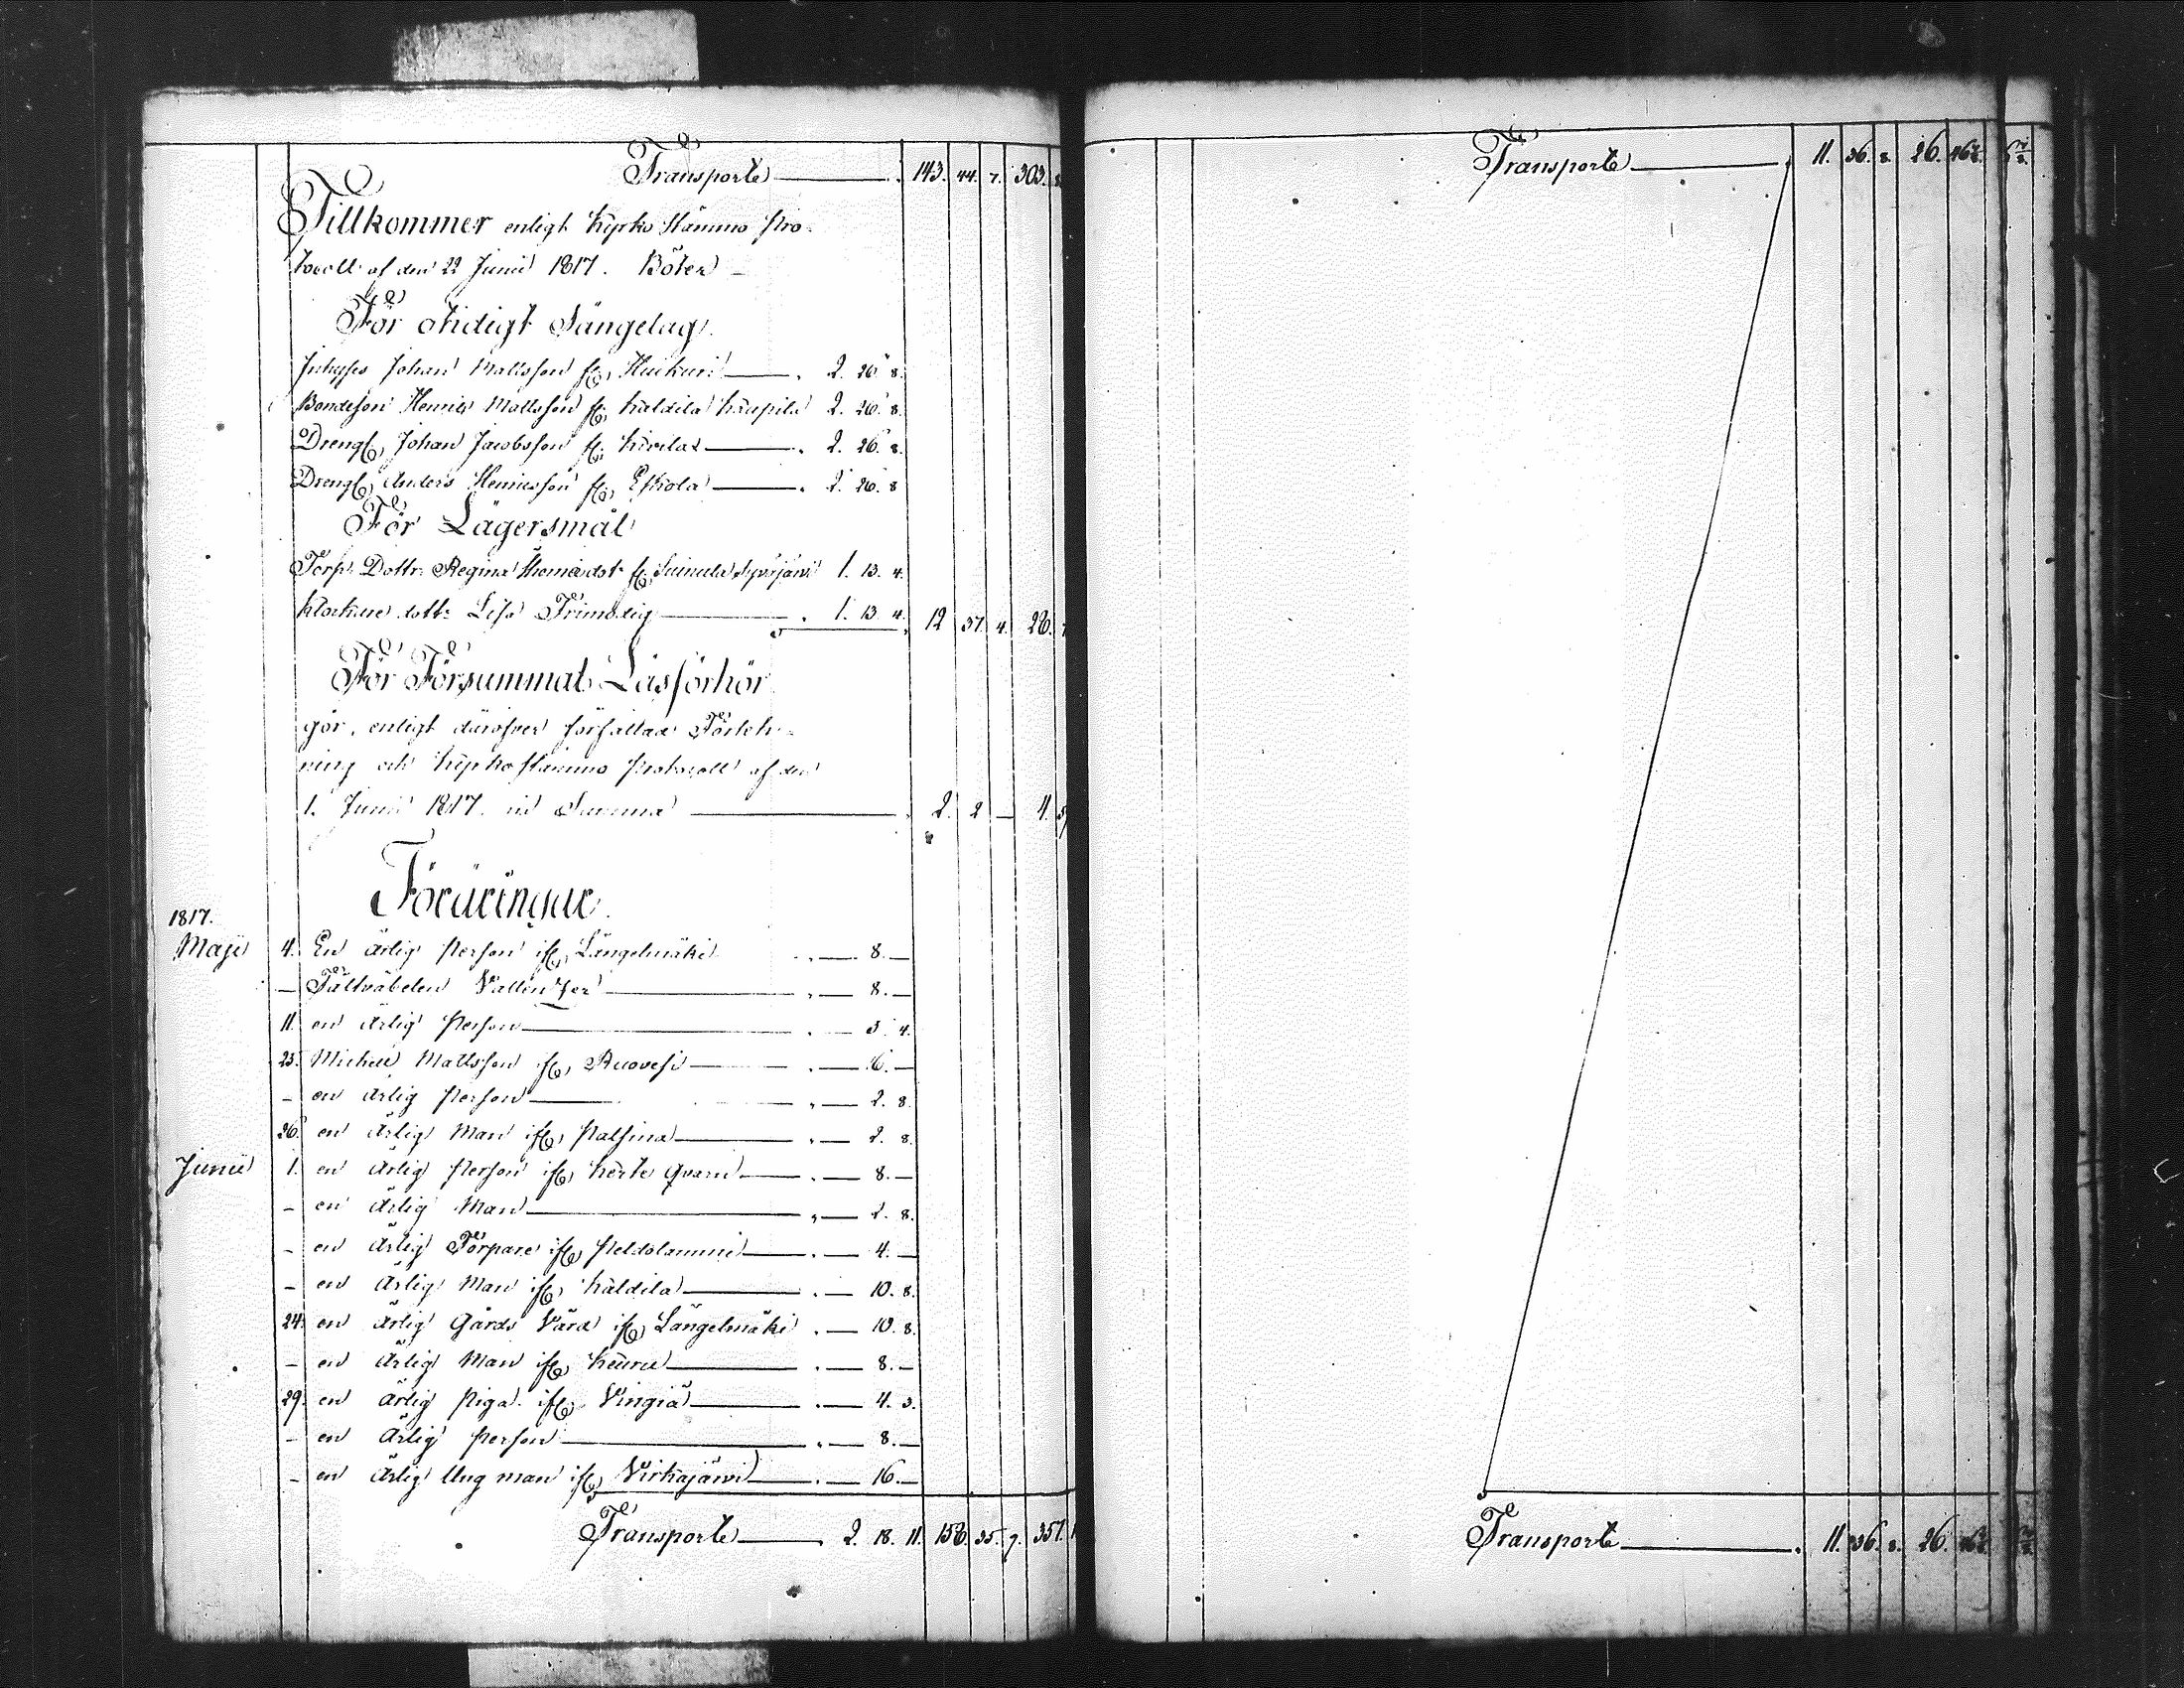 Transporte 143. 44. 7. 303.
Tillkommer enligt Kyrko Stämmo Pro-
tocoll af den 22 Junii 1817. Böter
För otidigt Sängelag.
Johan Mattsson fr. Huikuri 2. 26. 8.
Bondeson Henric Mattsson fr. Kaldila Kaupila 2. 26. 8.
Dreng fr. Johan Jacobsson fr. Kivilax 2. 26. 8.
Dreng fr. Anders Henricsson fr. Eskola 2. 26. 8
För Lägersmål
Torp. Dottr. Regina Thomædotr fr. Suinula Syväjärvi 1. 13. 4.
Klockare dottr. Lisa Frimodig 1. 13. 4. 12 37. 4. 28.
För Försummat Läsförhör
gör, enligt däröfver författad Förtek-
ning och Kyrkostämmo Protocoll af den
1. Junii 1817. in Summa 2. 2 — 4.
Föräringar.
1817.
Maji 4. En ärlig Person ifr. Längelmäki — 8. —
— Fältväbelen Vallentjer — 8. —
11. en ärlig Person — 5. 4.
25. Michel Mattsson fr. Ruovesi — 6. —
— en ärlig Person — 2. 8.
26. en ärlig Man ifr. Palsina — 2. 8.
Junii 1. en ärlig Person ifr. Kerte Qvarn — 8. —
— en ärlig Man — 2. 8.
— en ärlig Torpare ifr. Peldolammi — 4. —
— en ärlig Man ifr. Kaldila — 10. 8.
24. en ärlig Gårds Värd ifr. Längelmäki — 10. 8.
— en ärlig Man ifr. Keuru — 8. —
29. en ärlig Piga ifr. Vingiä — 4. 3.
— en ärlig Person — 8. —
— en ärlig Ung man ifr. Virkajärvi — 16. —
Transporte 2. 18. 11. 158. 35. 7. 357.
Transporte 11. 36. 8. 26. 46½.
Transporte 11. 36. 8. 26. 46½.